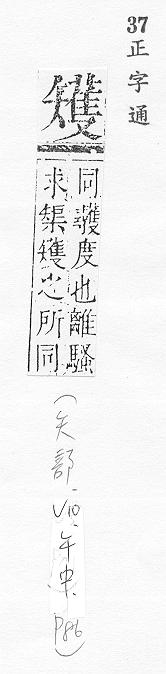 37 正字通
矱
同彠度也離騷
求榘矱之所同
(矢部、V10、午中、P86)